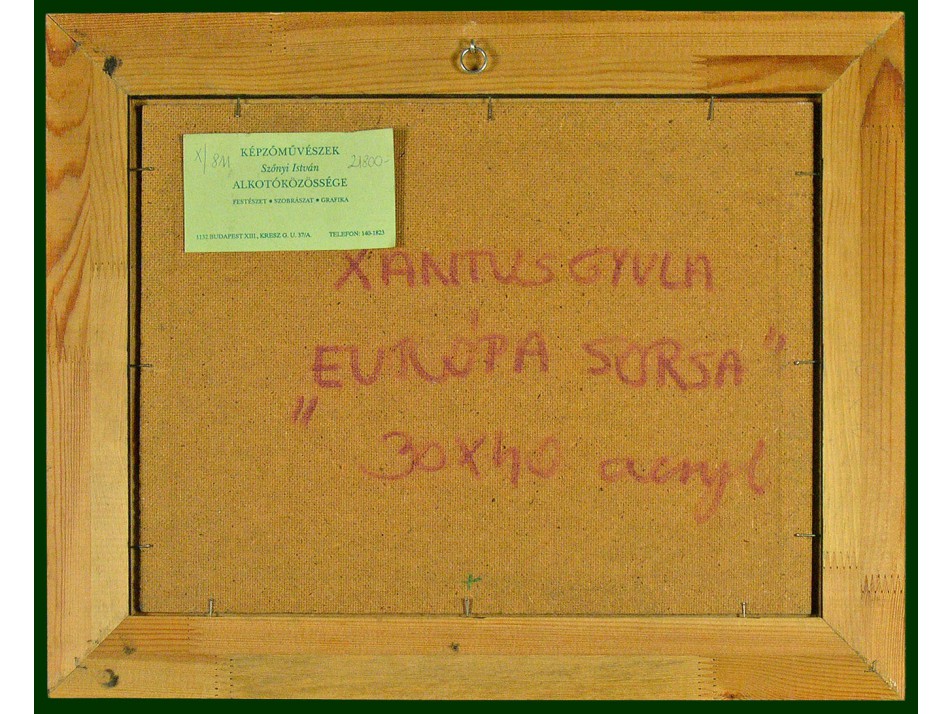 X/811 21800-
KÉPZŐMŰVÉSZEK
Szőnyi István
ALKOTÓKÖZÖSSÉGE
FESTÉSZET • SZOBRÁSZAT • GRAFIKA
1132 BUDAPEST XIII., KRESZ G. U. 37/A. TELEFON: 140-1823
XANTUS GYULA
„EURÓPA SORSA"
30X40 acryl